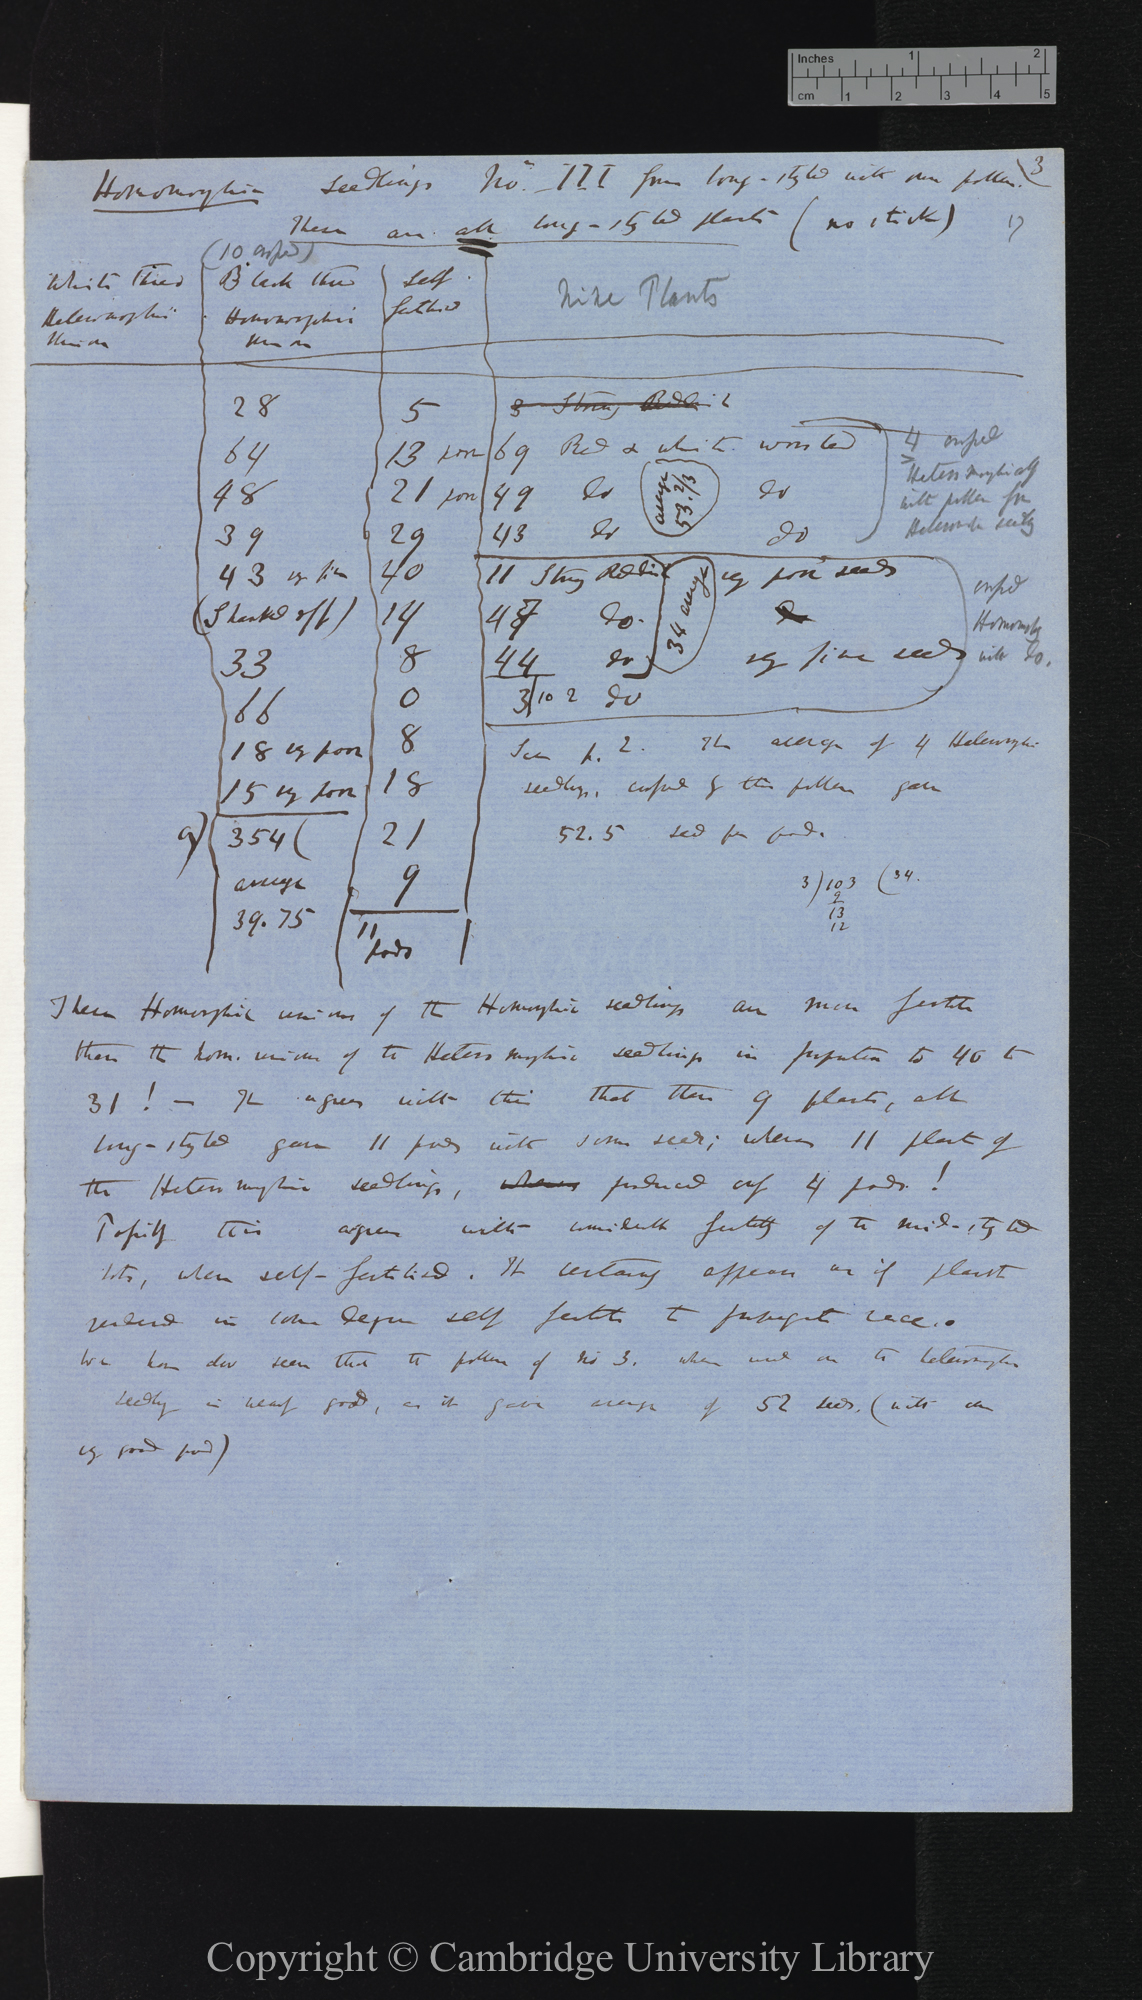 Inches 1 2
cm 1 2 3 4 5
3
Homomorphic seedlings No. III from long-styled with own pollen.
These are all long-styled plants (no stick) 17
(10 crossed)
White Thread Heteromorphic Union
Black thread Homomorphic union
Self fertilised
Nine Plants
28 5
64 13 poor 69 Red & white worsted
48 21 poor 49 do do
39 29 43 do do
average 53.2/3
4 crossed Heteromorphically with pollen from Heterom seedling
43 vy fine 40 11 String Reddish vy poor seeds
(Shanked off) 14 48 do.
33 8 44 do vy fine seeds
34 average
crossed Homomorph with do.
66 0 3/102 do
18 vy poor 8
15 vy poor 18
Seen p. 2. The average of 4 Heteromorphic
seedlings, crossed by this pollen gave
52.5 seed per pod.
9) 354 ( 21
average 9
39.75 11 pods
3)103 (34.
9
13
12
These Homorphic unions of the Homorphic seedlings are more fertile
than the hom. unions of the Heteromorphic seedlings in proportion to 40 to
31! — It agrees with this that these 9 plants, all
long-styled gave 11 pods with some seed; whereas 11 plants of
the Heteromorphic seedlings, whereas produced only 4 pods!
Possibly this agrees with considerable fertility of the mid-styled
lots, when self-fertilised. It certainly appears as if plants
rendered in some degree self fertile to propagate race.
We have also seen that the pollen of No 3. when used on the heteromorphic
seedling is nearly good, as it gave average of 52 seeds. (with one
vy good pod)
Copyright © Cambridge University Library